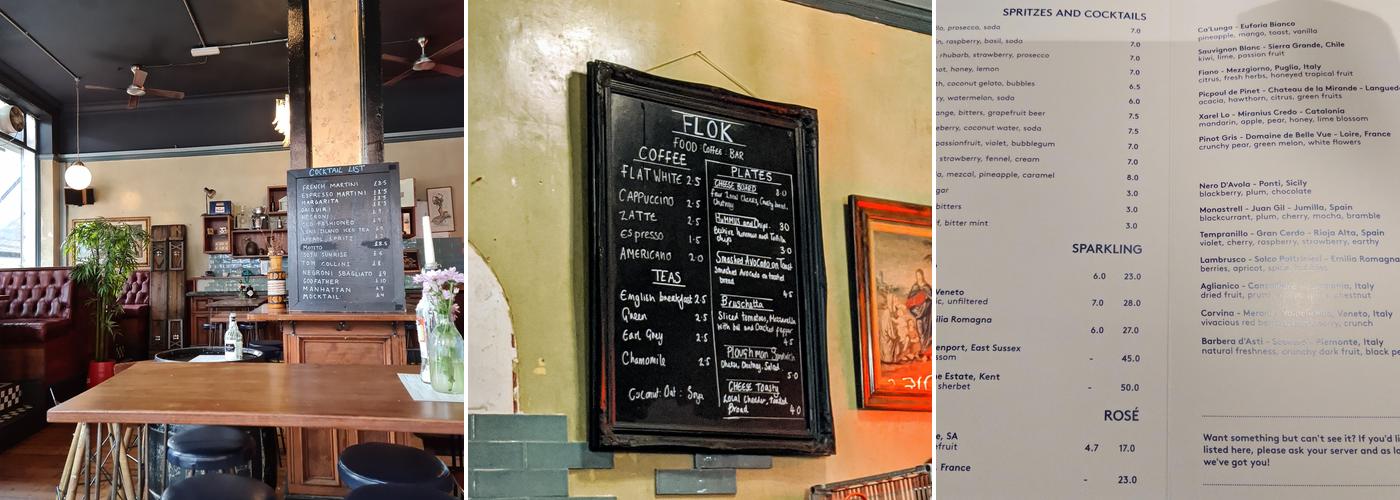 COCKTAIL LIST
FRENCH MARTINI £8.5
ESPRESSO MARTINI
MARGARITA
DAIQUIRI
NEGRONI
OLD FASHIONED
LONG ISLAND ICED TEA
APEROL SPRITZ
MOJITO £8.5
TOM COLLINS
NEGRONI SBAGLIATO £9
GODFATHER £10
MANHATTAN £9
MOCKTAIL £4
FLOK
FOOD : COFFEE : BAR
COFFEE
FLAT WHITE 2.5
CAPPUCCINO 2.5
LATTE 2.5
ESPRESSO 1.5
AMERICANO 2.0
TEAS
English breakfast 2.5
Green 2.5
Earl Grey 2.5
Chamomile 2.5
Coconut : Oat : Soya
PLATES
CHEESE BOARD 8.0
Four Local Cheeses, Crusty bread,
Chutney
Hummus and Chips 3.0
hummus and Tortilla
chips 3.0
Smashed Avocado on Toast
Smashed Avocado on toasted
bread 4.5
Bruschetta
Sliced tomatoes, Mozzarella
with basil and Cracked pepper
4.5
Ploughman Sandwich
Cheese, Chutney, Salad
5.0
CHEESE TOASTY
Local Cheddar, Toasted
Bread 4.0
SPRITZES AND COCKTAILS
llo, prosecco, soda 7.0
n, raspberry, basil, soda 7.0
rhubarb, strawberry, prosecco 7.0
not, honey, lemon 7.0
th, coconut gelato, bubbles 6.5
ry, watermelon, soda 6.0
ange, bitters, grapefruit beer 7.5
eberry, coconut water, soda 7.5
passionfruit, violet, bubblegum 7.0
strawberry, fennel, cream 7.0
a, mezcal, pineapple, caramel 8.0
gar 3.0
bitters 3.0
f, bitter mint 3.0
SPARKLING
6.0 23.0
Veneto
ic, unfiltered 7.0 28.0
ilia Romagna
6.0 27.0
enport, East Sussex
ssom - 45.0
e Estate, Kent
sherbet - 50.0
ROSÉ
e, SA
efruit 4.7 17.0
France
- 23.0
Ca'Lunga - Euforia Bianco
pineapple, mango, toast, vanilla
Sauvignon Blanc - Sierra Grande, Chile
kiwi, lime, passion fruit
Fiano - Mezzgiorno, Puglia, Italy
citrus, fresh herbs, honeyed tropical fruit
Picpoul de Pinet - Chateau de la Mirande - Langued
acacia, hawthorn, citrus, green fruits
Xarel Lo - Miranius Credo - Catalonia
mandarin, apple, pear, honey, lime blossom
Pinot Gris - Domaine de Belle Vue - Loire, France
crunchy pear, green melon, white flowers
Nero D'Avola - Ponti, Sicily
blackberry, plum, chocolate
Monastrell - Juan Gil - Jumilla, Spain
blackcurrant, plum, cherry, mocha, bramble
Tempranillo - Gran Cerdo - Rioja Alta, Spain
violet, cherry, raspberry, strawberry, earthy
Lambrusco - Solco Paltrinieri - Emilia Romagna
berries, apricot, spice
Aglianico - Italy
dried fruit, chestnut
Corvina - Veneto, Italy
vivacious red crunch
Barbera d'Asti - Piemonte, Italy
natural freshness, crunchy dark fruit, black p
Want something but can't see it? If you'd li
listed here, please ask your server and as lo
we've got you!